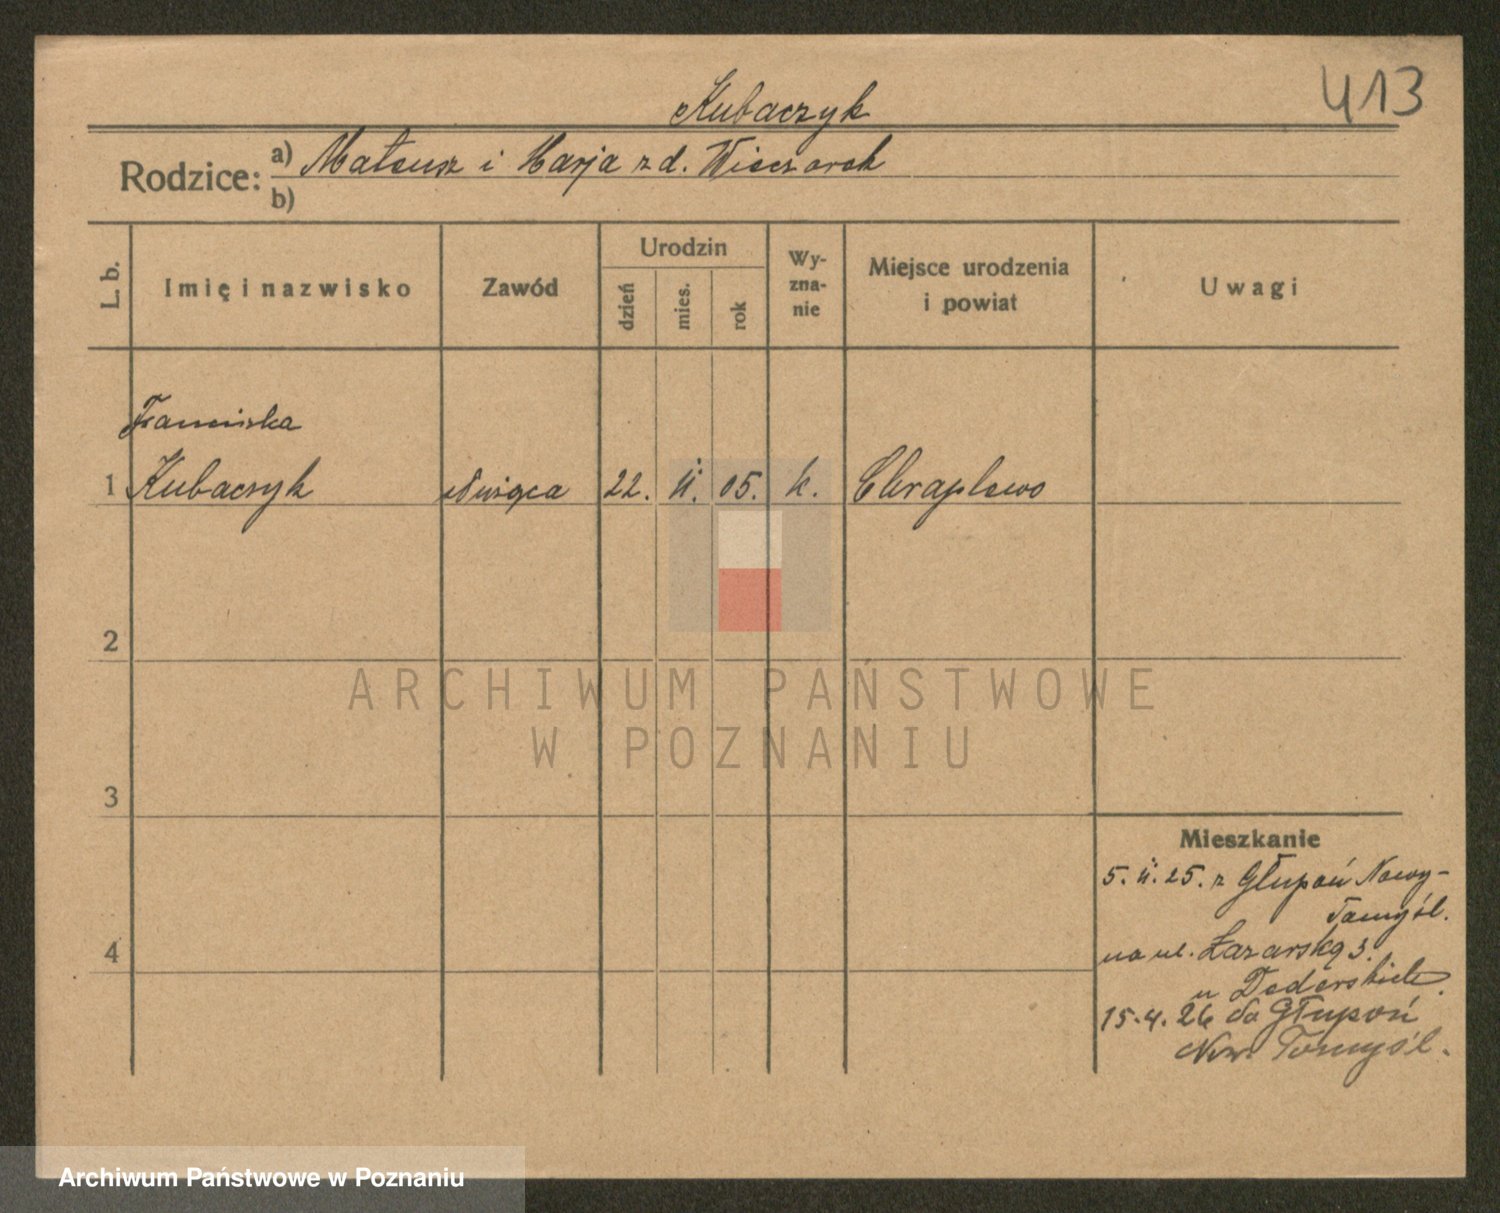 413
Kubaczyk
Rodzice: a) Mateusz i Marja z d. Wieczorek
b)
L. b.
Imię i nazwisko
Zawód
Urodzin
dzień
mies.
rok
Wy-
zna-
nie
Miejsce urodzenia
i powiat
Uwagi
Franciszka
1 Kubaczyk służąca 22. II. 05. k. Chraplewo
2
3
4
Mieszkanie
5. II. 25. z Głupoń Nowy-
Tomyśl.
na ul. Łazarską 3.
u
15.4.26 do Głupoń
Now. Tomyśl.
ARCHIWUM PAŃSTWOWE
W POZNANIU
Archiwum Państwowe w Poznaniu